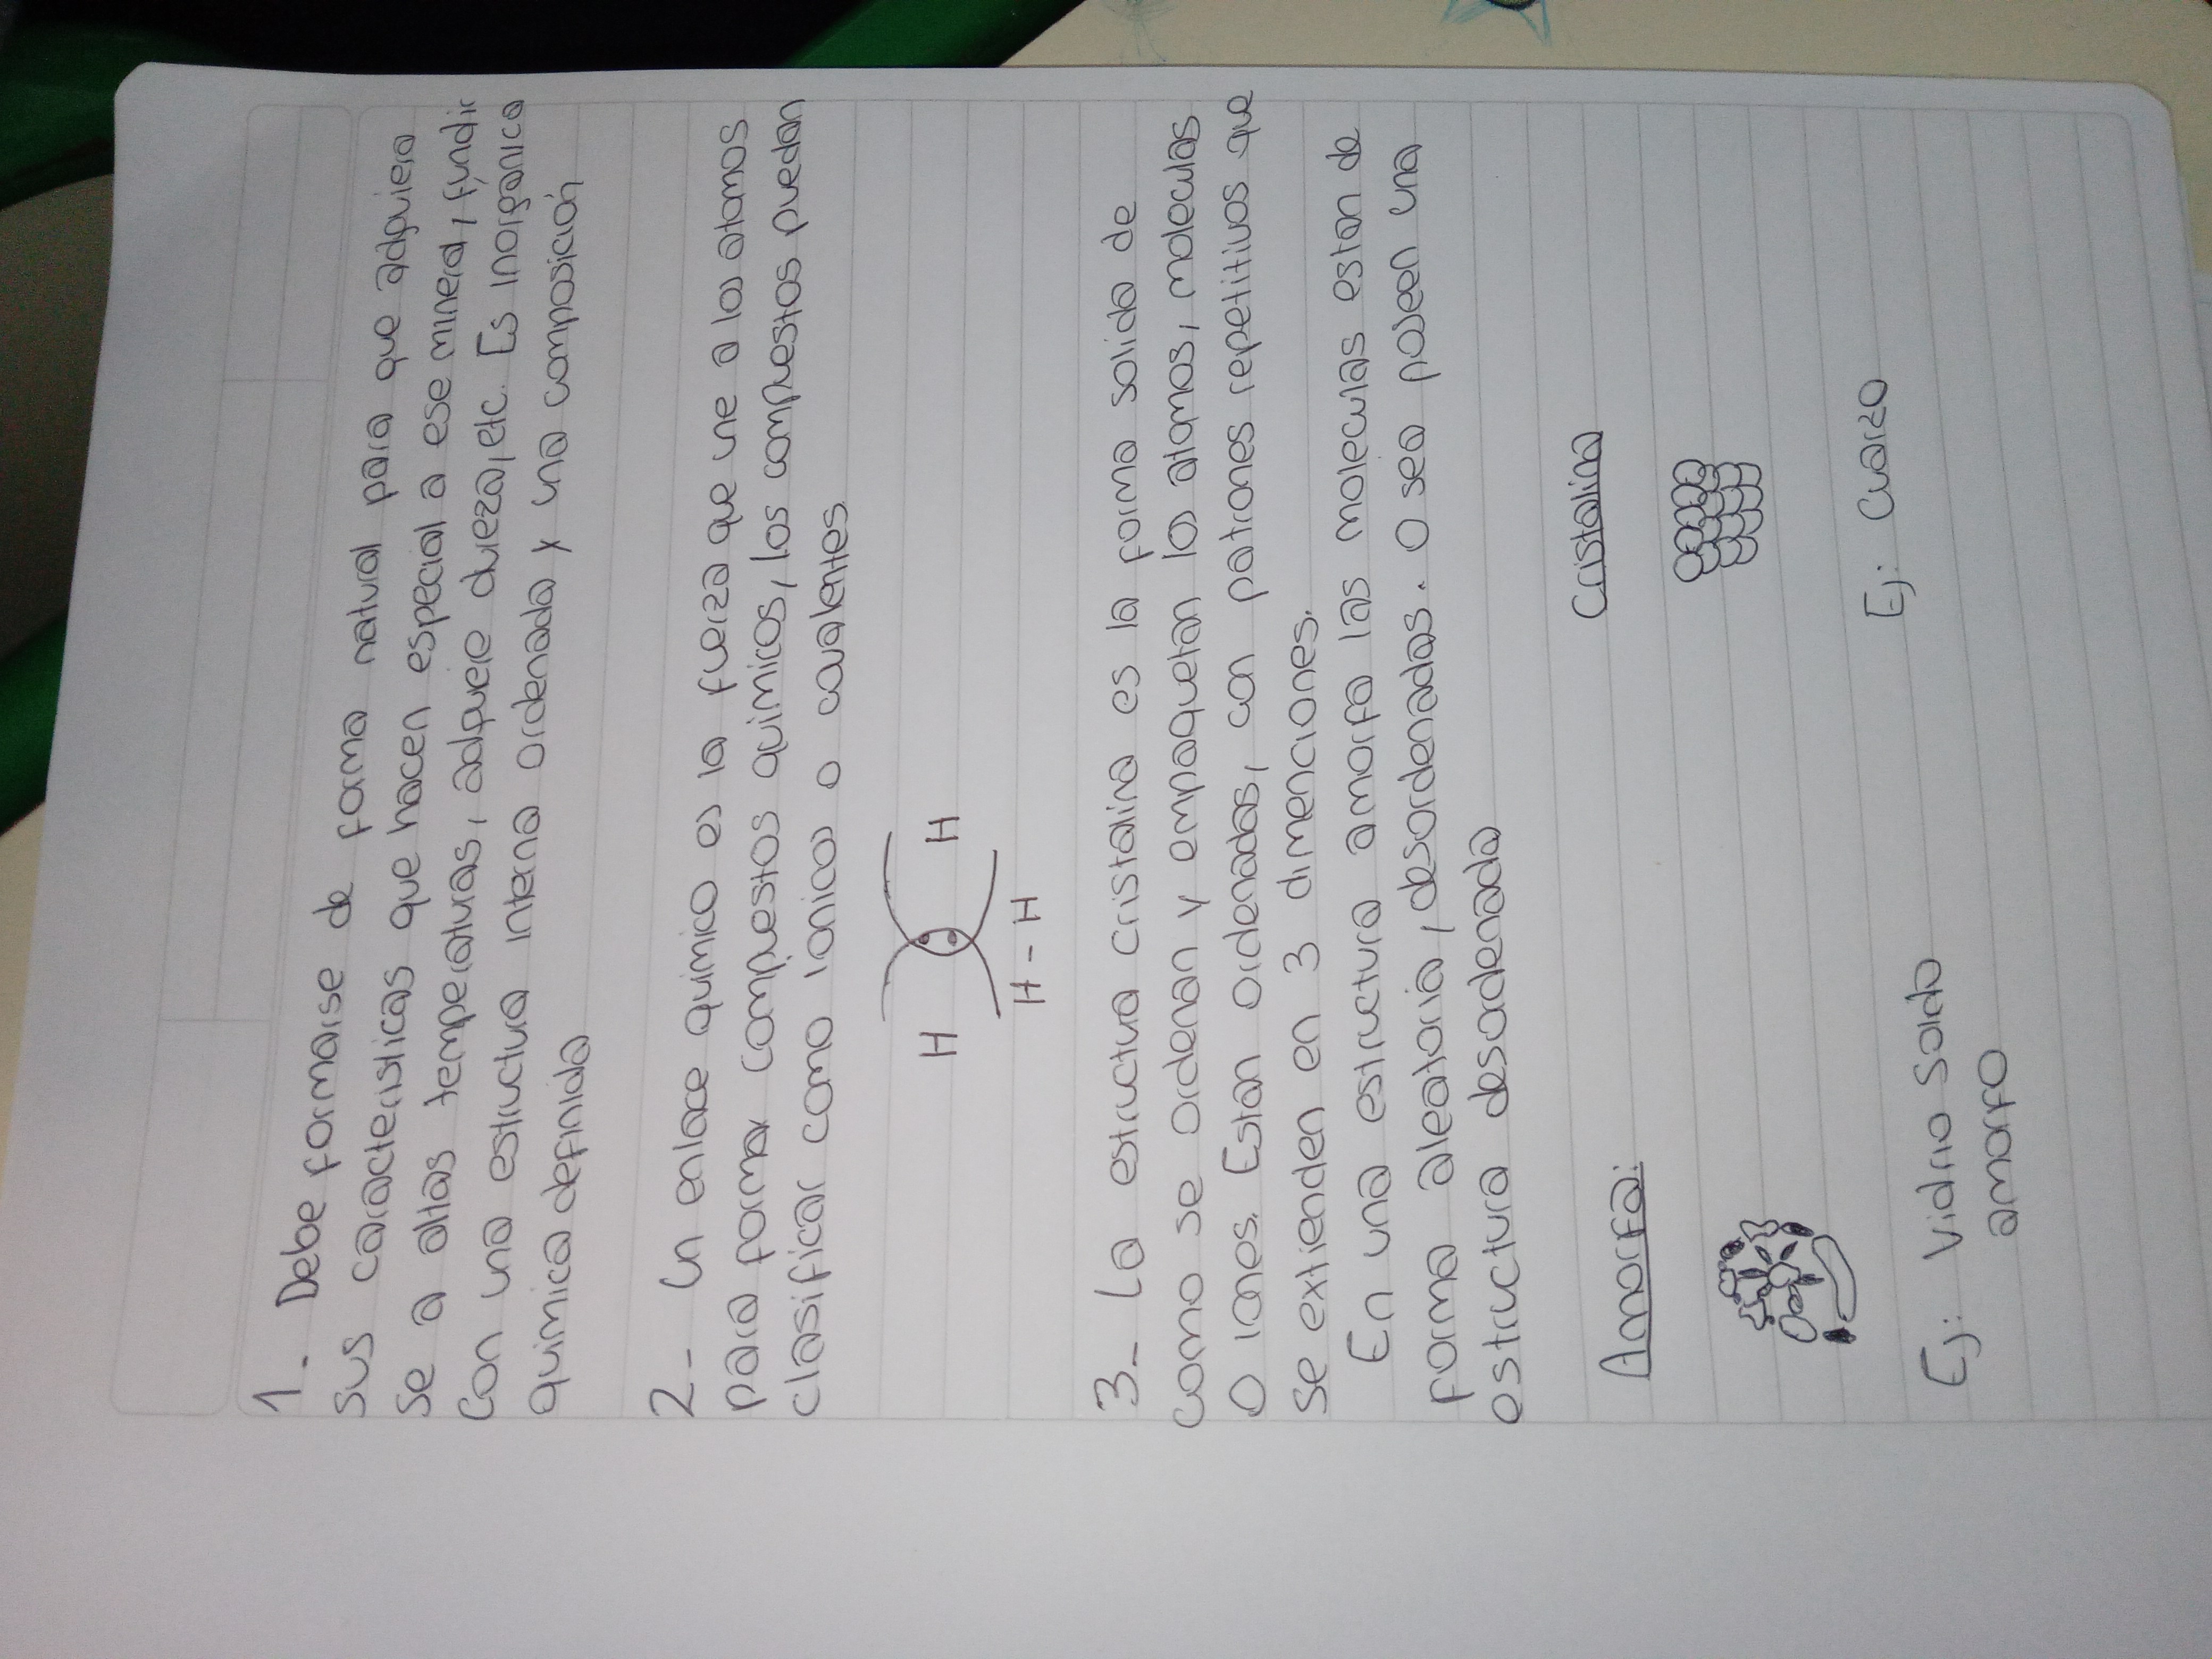 1- Debe formarse de forma natural para que adquiera
sus caracteristicas que hacen especial a ese mineral, fundir
se a altas temperaturas, adquiere dureza, etc. Es inorganico
Con una estructura interna ordenada y una composición
quimica definida
2- Un enlace quimico es la fuerza que une a los atomos
para formar compuestos quimicos, los compuestos puedan
clasificar como ionicos o covalentes
H H
H - H
3- La estructura cristalina es la forma solida de
como se ordenan y empaquetan los atomos, moleculas
o iones. Estan ordenados, con patrones repetitivos que
se extienden en 3 dimenciones.
En una estructura amorfa las moleculas estan de
forma aleatoria, desordenadas. O sea poseen una
estructura desordenada
Amorfa: Cristalina
Ej: Vidrio Solido Ej: Cuarzo
amorfo